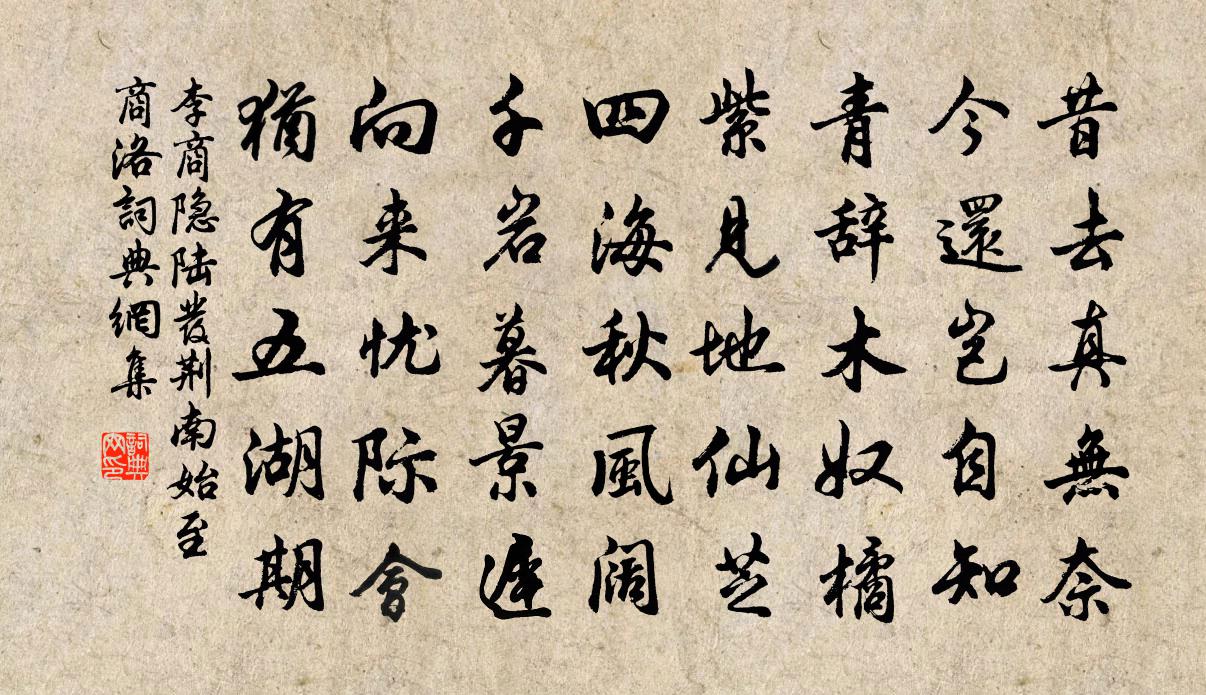 昔去真無奈
今還岂自知
青辞木奴橘
紫見地仙芝
四海秋風阔
千岩暮景遲
向来忧际會
猶有五湖期
李商隐陆發荆南始至
商洛詞典網集
詞典
网印